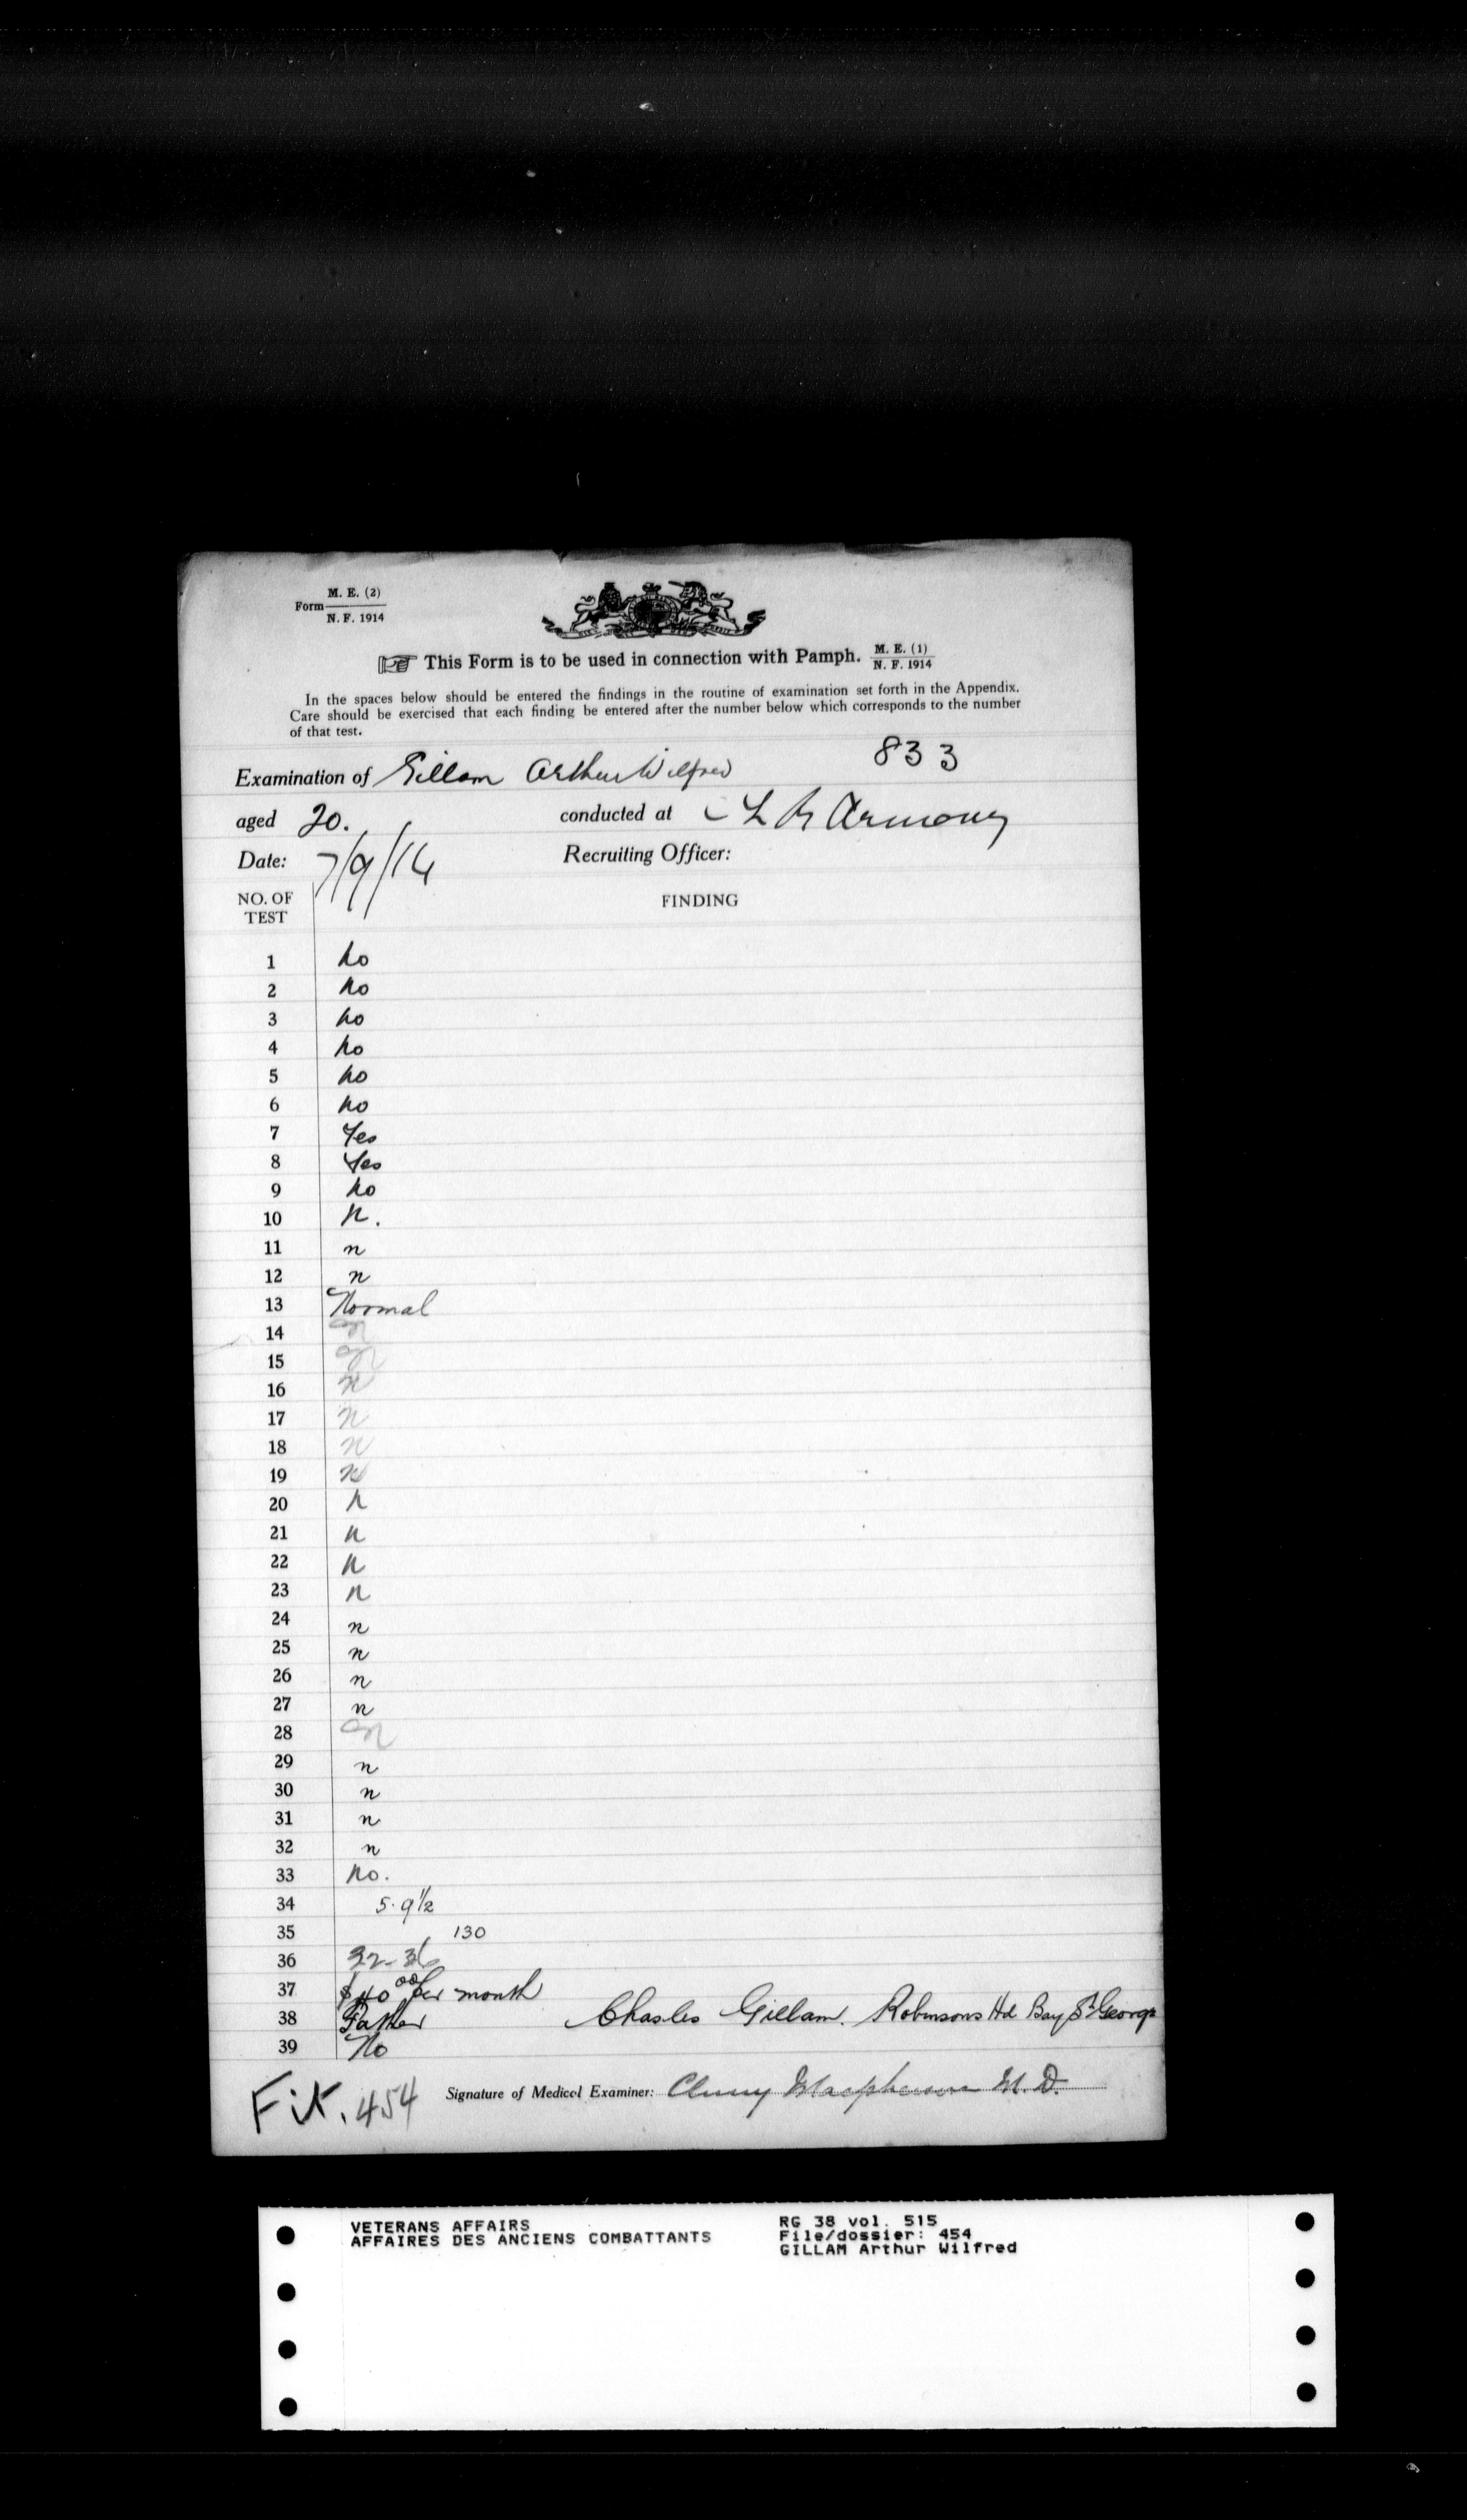 M. E. (2)
Form
N. F. 1914
This Form is to be used in connection with Pamph. M. E. (1)
N. F. 1914
In the spaces below should be entered the findings in the routine of examination set forth in the Appendix.
Care should be exercised that each finding be entered after the number below which corresponds to the number
of that test.
833
Examination of Gillam Arthur Wilfred
aged 20. conducted at Armoury
Date: 7/9/14 Recruiting Officer:
NO. OF TEST FINDING
1 No
2 No
3 No
4 No
5 No
6 No
7 Yes
8 Yes
9 No
10 N.
11 n
12 n
13 Normal
14 n
15 n
16 n
17 n
18 n
19 n
20 n
21 n
22 n
23 n
24 n
25 n
26 n
27 n
28 n
29 n
30 n
31 n
32 n
33 No.
34 5.9½
35 130
36 32-36
37 $40 00 per month
38 Father Charles Gillam. Robinsons Hd Bay St George
39 No
Fit. 454 Signature of Medical Examiner: Cluny Macpherson M.D.
VETERANS AFFAIRS
AFFAIRES DES ANCIENS COMBATTANTS
RG 38 vol. 515
File/dossier: 454
GILLAM Arthur Wilfred